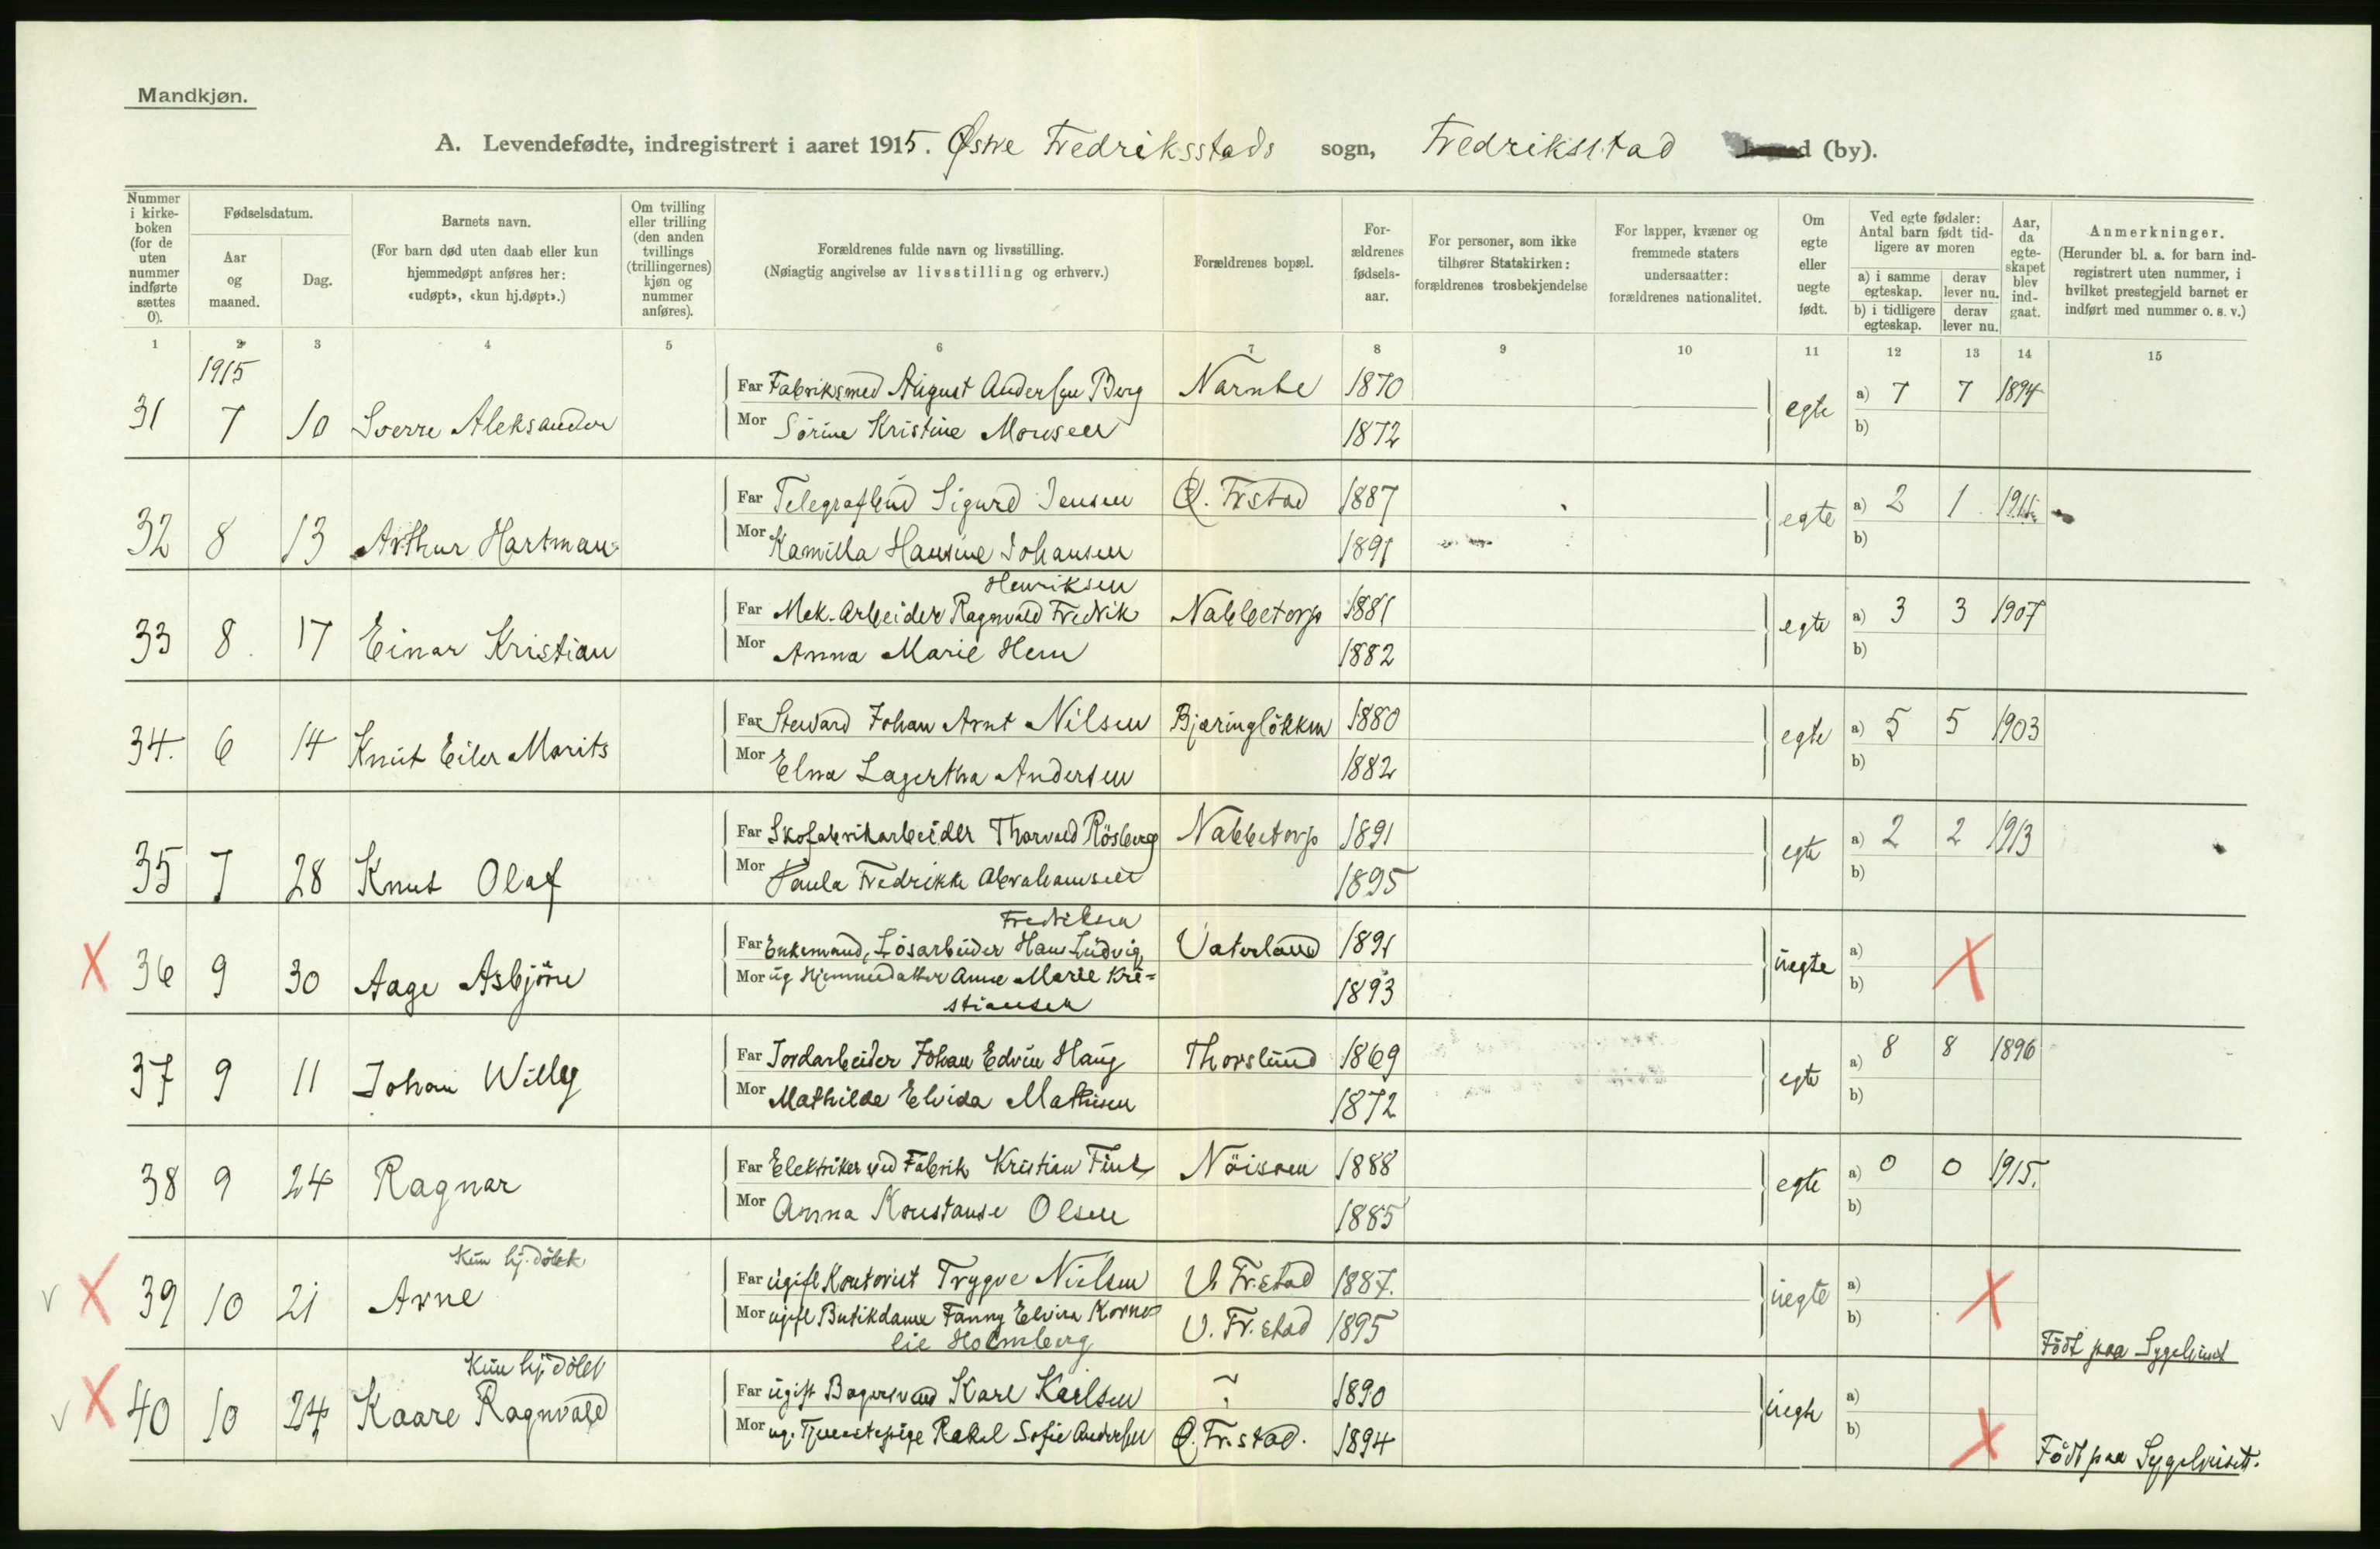 Mandkjøn.
A. Levendefødte, indregistrert i aaret 1915. Østre Fredriksstads sogn, Fredriksstad (by).
Nummer i kirke-boken (for de uten nummer indførte sættes 0).
Fødselsdatum.
Aar og maaned.
Dag.
Barnets navn.
(For barn død uten daab eller kun hjemmedøpt anføres her: «udøpt», «kun hj.døpt».)
Om tvilling eller trilling (den anden tvillings (trillingernes) kjøn og nummer anføres).
Forældrenes fulde navn og livsstilling.
(Nøiagtig angivelse av livsstilling og erhverv.)
Forældrenes bopæl.
For-ældrenes fødsels-aar.
For personer, som ikke tilhører Statskirken: forældrenes trosbekjendelse
For lapper, kvæner og fremmede staters undersaatter: forældrenes nationalitet.
Om egte eller uegte født.
Ved egte fødsler: Antal barn født tid-ligere av moren
a) i samme egteskap. derav lever nu.
b) i tidligere egteskap. derav lever nu.
Aar, da egte-skapet blev ind-gaat.
Anmerkninger.
(Herunder bl. a. for barn ind-registrert uten nummer, i hvilket prestegjeld barnet er indført med nummer o. s. v.)
1 2 3 4 5 6 7 8 9 10 11 12 13 14 15
1915
Far Fabriksmed August Andersen Berg Narnte 1870
31 7 10 Sverre Aleksander egte a) 7 7 1894
Mor Sørine Kristine Monsen 1872 b)
Far Telegrafbud Sigurd Jensen Ø. Frstad 1887
32 8 13 Arthur Hartman egte a) 2 1
Mor Kamilla Hansine Johansen 1891 b)
Henriksen
Far Mek. Arbeider Ragnvald Fredrik Nabbetorp 1881
33 8. 17 Einar Kristian egte a) 3 3 1907
Mor Anna Marie Hern 1882 b)
Far Steward Johan Arnt Nilsen Bjæringløkken 1880
34. 6 14 Knut Eiler Marits egte a) 5 5 1903
Mor Elna Lagertha Andersen 1882 b)
Far Skofabrikarbeider Thorvald Rösberg Nabbetorp 1891
35 7 28 Knut Olaf egte a) 2 2 1913
Mor Paula Fredrikke Abrahamsen 1895 b)
Fredriksen
Far Enkemand, Lösarbeider Hans Ludvig Vaterland 1891
X 36 9 30 Aage Asbjörn uegte a) X
Mor ug Hjemmedatter Anna Marie Kri=
stiansen 1893 b)
Far Jordarbeider Johan Edvin Haug Thorslund 1869
37 9 11 Johan Willy egte a) 8 8 1896
Mor Mathilde Elvida Mathisen 1872 b)
Far Elektriker ved Fabrik Kristian Fink Nöisom 1888
38 9 24 Ragnar egte a) 0 0 1915.
Mor Anna Konstanse Olsen 1885 b)
Kun hj. döbt
Far ugift Kontorist Trygve Nielsen V. Fr.stad 1887.
v X 39 10 21 Arne uegte a) X
Mor ugift Butikdame Fanny Elvira Korne=
lie Holmberg V. Fr.stad 1895 b)
Födt paa Sygehuset
Kun hj. döbt
Far ugift Bagersvend Karl Karlsen ? 1890
v X 40 10 24 Kaare Ragnvald uegte a)
Mor ug. Tjenestepige Rakel Sofie Andersen Ø. Fr.stad. 1894 b) X
Födt paa Sygehuset.